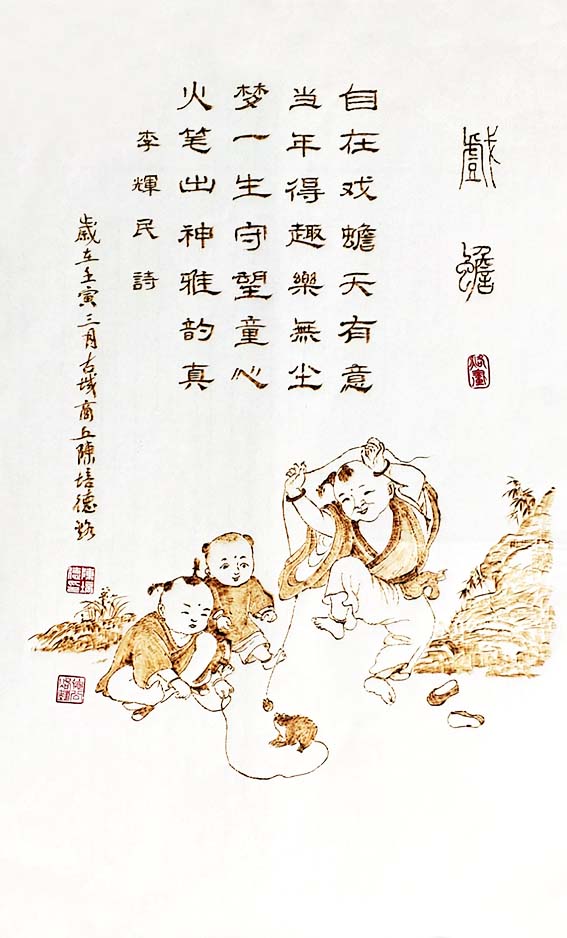 戲蟾
自在戏蟾天有意
当年得趣樂無尘
梦一生守望童心
火笔出神雅韵真
李輝民詩
歲在壬寅三月古城商丘陳培德烙
烙畫